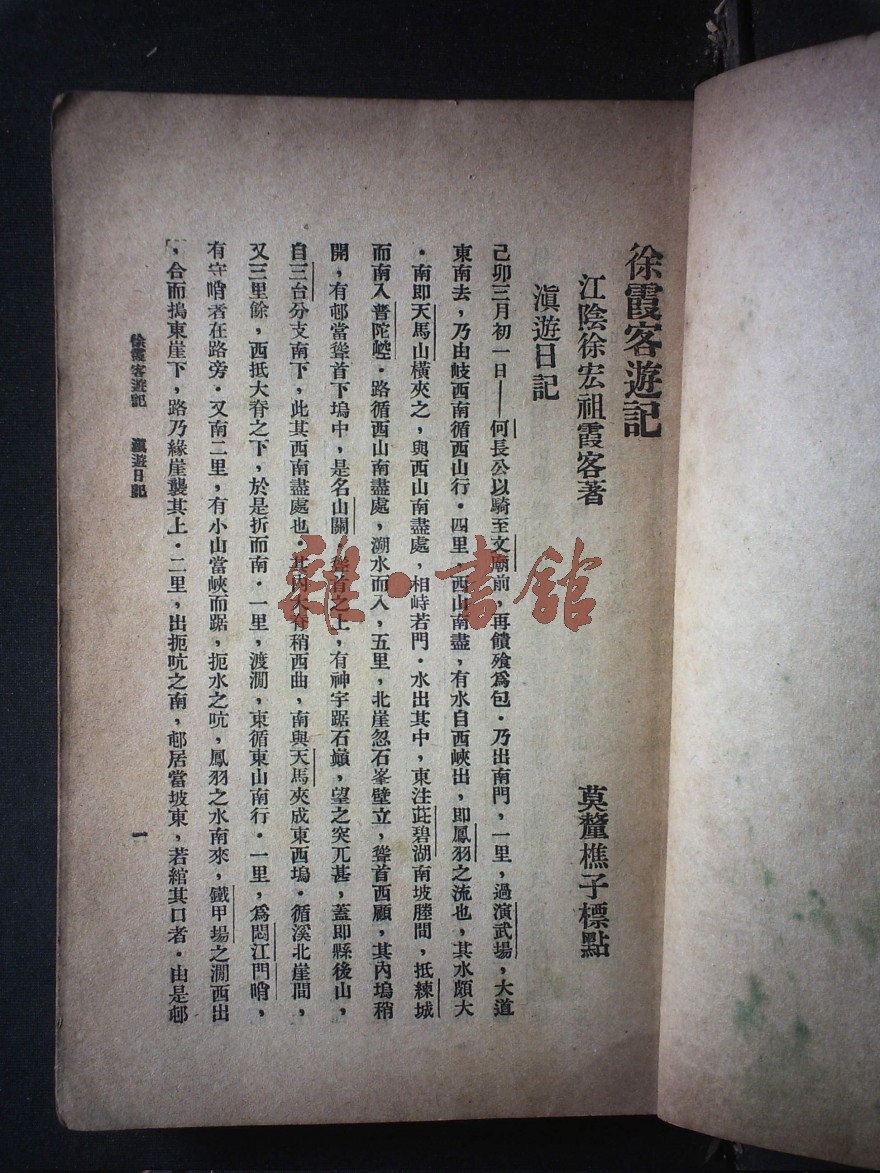 徐霞客遊記
江陰徐宏祖霞客著　莫釐樵子標點
滇遊日記
己卯三月初一日——何長公以騎至文廟前，再饋飧爲包．乃出南門，一里，過演武場，大道
東南去，乃由岐西南循西山行．四里，西山南盡，有水自西峽出，卽鳳羽之流也，其水頗大
．南卽天馬山橫夾之，與西山南盡處，相峙若門．水出其中，東注茈碧湖南坡塍間，抵練城
而南入普陀崆．路循西山南盡處，溯水而入，五里，北崖忽石峯壁立，聳首西顧，其內塢稍
開，有邨當聳首下塢中，是名山關．聳首之上，有神宇踞石巓，望之突兀甚，蓋卽縣後山，
自三台分支南下，此其西南盡處也．其內大脊稍西曲，南與天馬夾成東西塢．循溪北崖間，
又三里餘，西抵大脊之下，於是折而南．一里，渡澗，東循東山南行．一里，爲悶江門哨，
有守哨者在路旁．又南二里，有小山當峽而踞，扼水之吭，鳳羽之水南來，鐵甲場之澗西出
，合而搗東崖下，路乃緣崖襲其上．二里，出扼吭之南，邨居當坡東，若綰其口者．由是邨
徐霞客遊記　滇遊日記
一
雜·書館